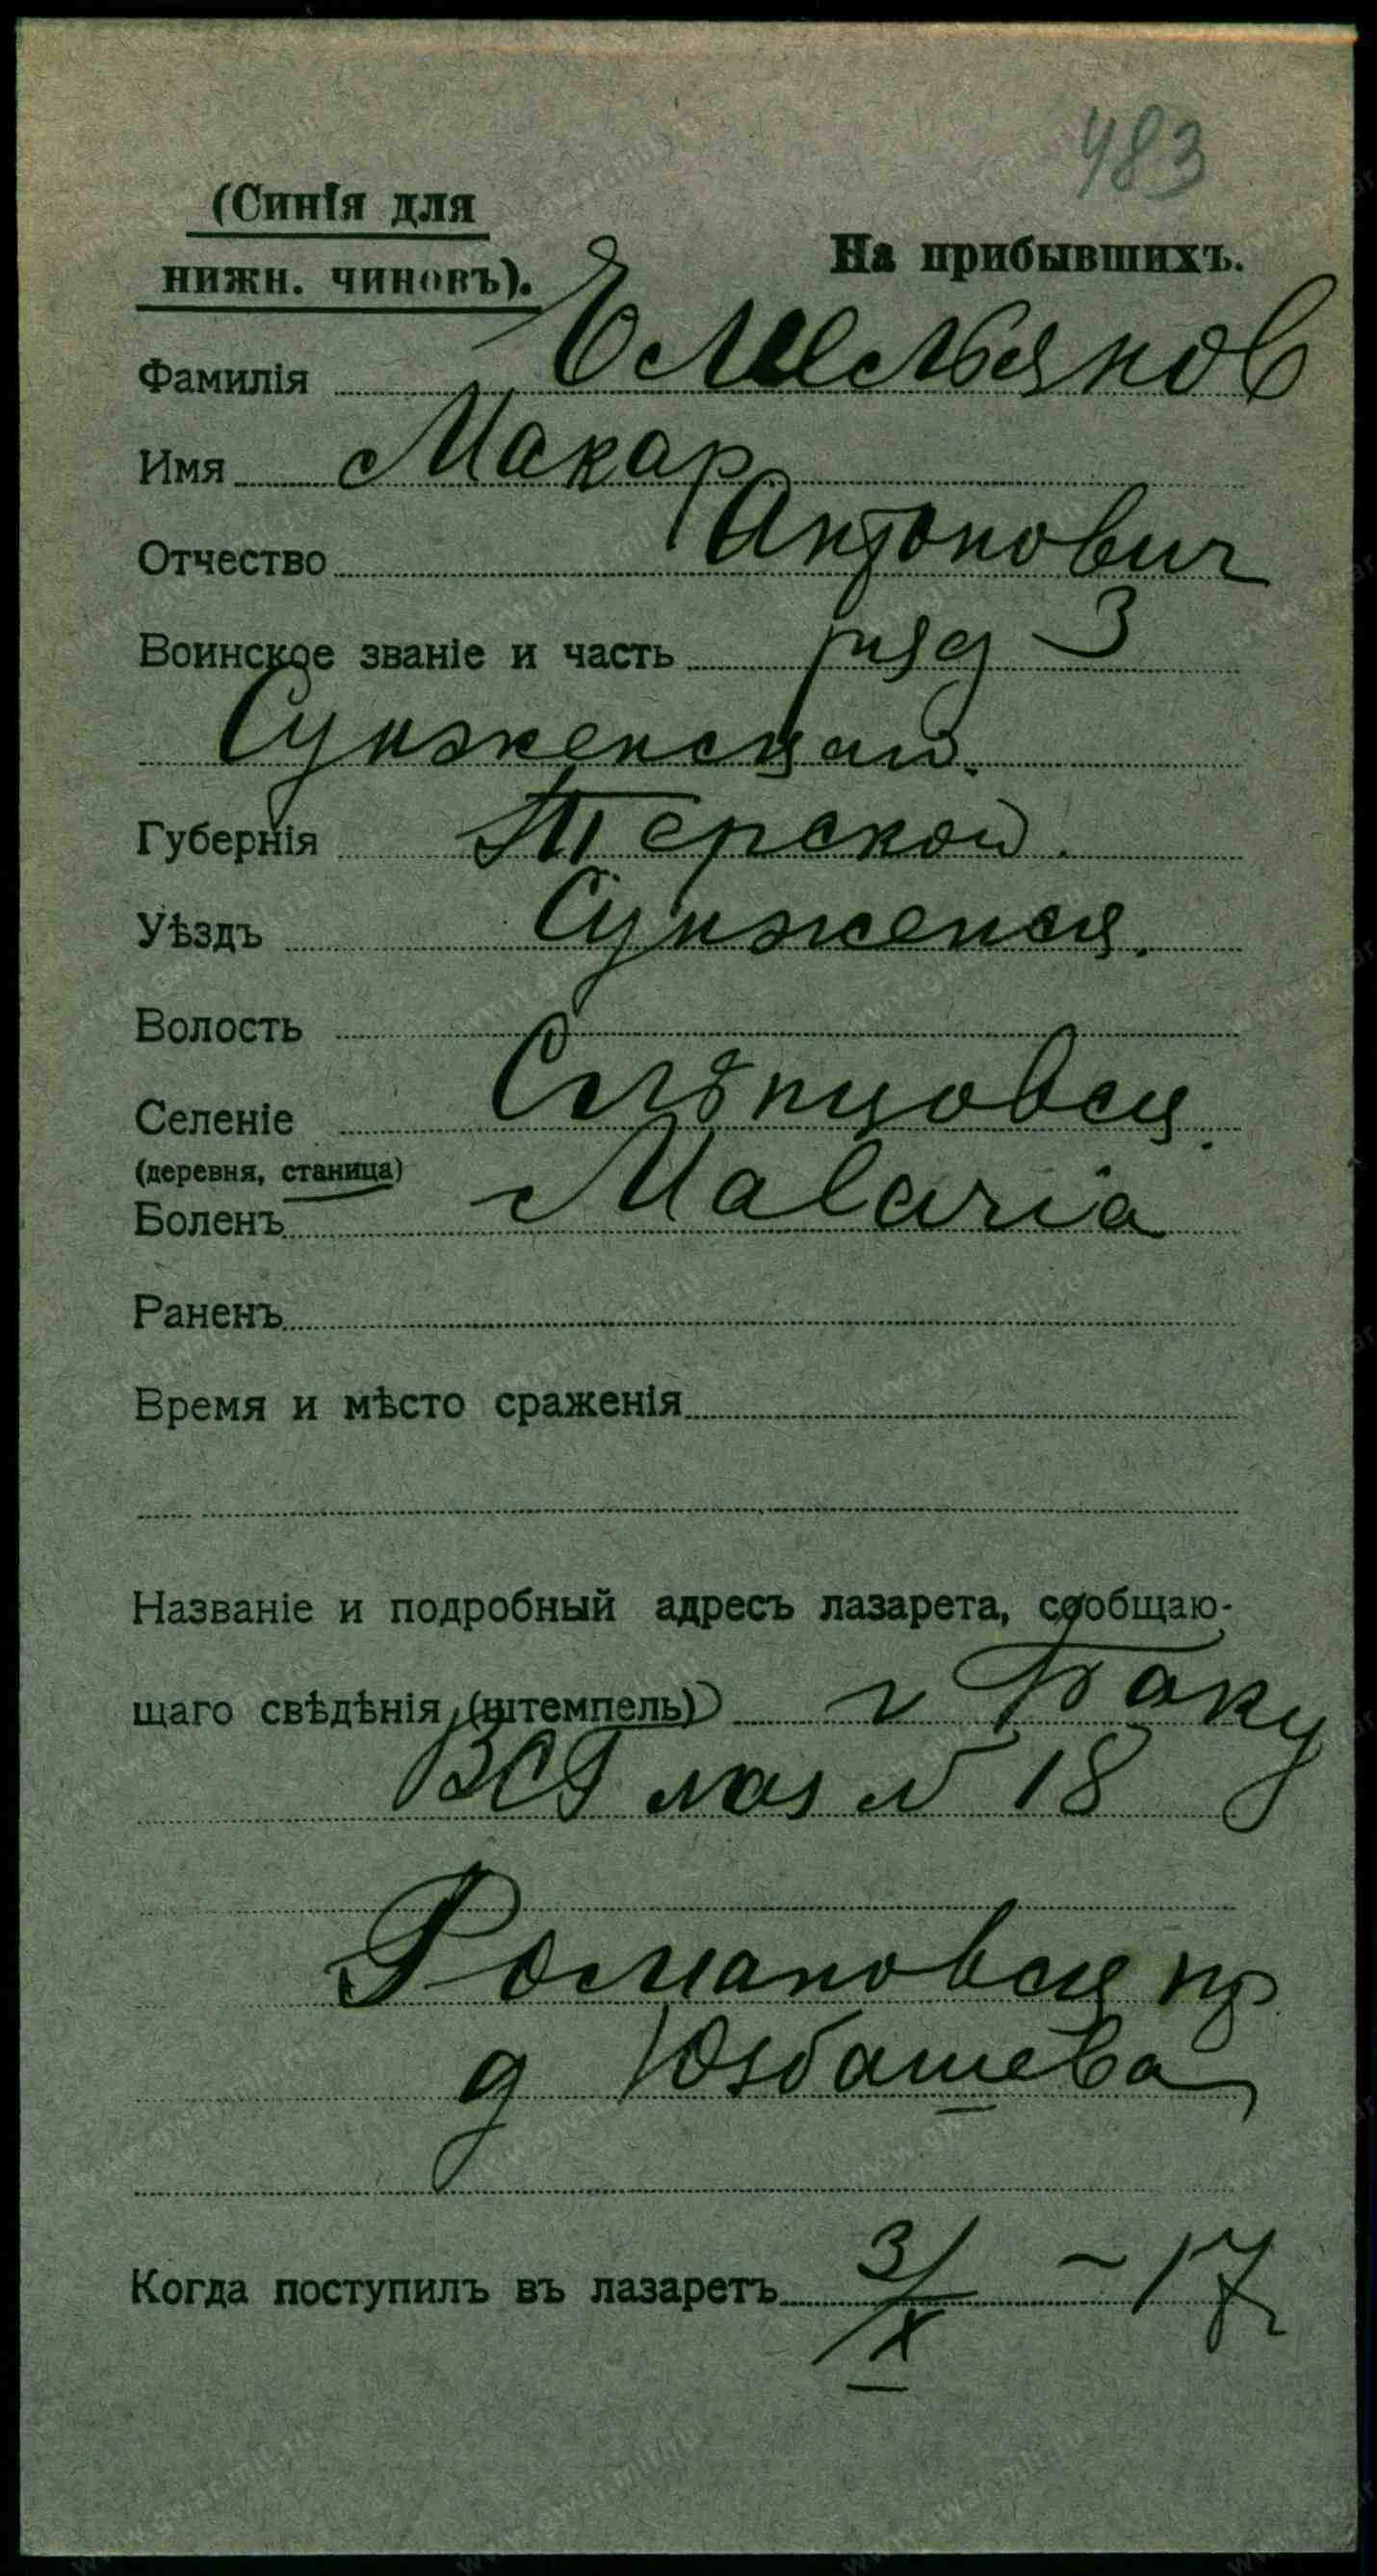 483
(Синія для
нижн. чиновъ).
На прибывшихъ.
Фамилія Емельянов
Имя Макар
Отчество Антонович
Воинское званіе и часть ряд 3
Сунженский.
Губернія Терской.
Уѣздъ Сунженск.
Волость
Селеніе Слѣпцовск.
(деревня, станица)
Боленъ Malaria
Раненъ
Время и мѣсто сраженія
Названіе и подробный адресъ лазарета, сообщаю-
щаго свѣдѣнія (штемпель) г Баку
ВСГ лаз № 18
Романовск пр
д Юзбашева
Когда поступилъ въ лазаретъ 3/X - 17